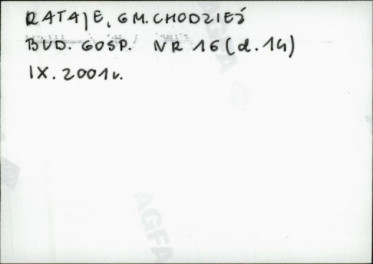 RATAJE, GM. CHODZIEŻ
BUD. GOSP. NR 16 (d. 14)
IX. 2001r.
AGFA
AGFA